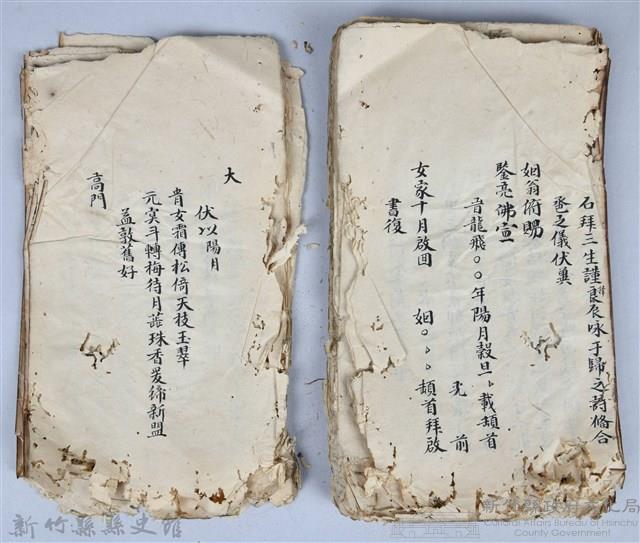 石拜三生謹詳良辰咏于歸之詩脩合
巹之儀伏冀
姻翁俯賜
鑒亮沸宣
旹龍飛〇〇年陽月穀旦、載頡首
前
女家十月啟回 姻〇、、頡首拜啟
書復
大
伏以陽月
青女霜傳松倚天枝玉翠
元冥斗轉梅待月蕋珠香爰締新盟
益敦舊好
高門
新竹縣縣史館
新竹縣政府文化局
Cultural Affairs Bureau of Hsinchu
County Government